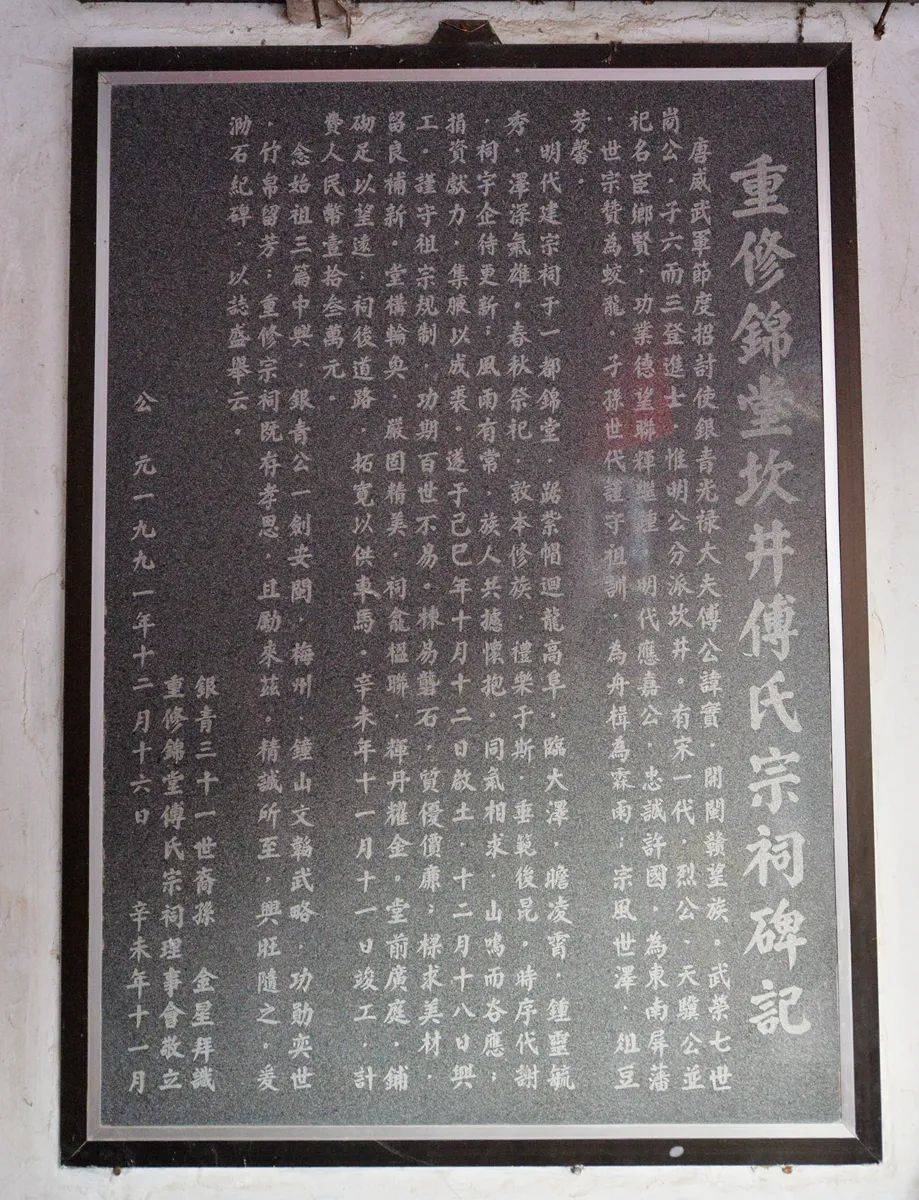 重修錦堂坎井傅氏宗祠碑記
唐威武軍節度招討使銀青光禄大夫傅公諱實，開閩贛望族。武榮七世
尚公，子六而三登進士，惟明公分派坎井。有宋一代，烈公、天驥公並
祀名宦鄉賢，功業德望聯輝繼踵，明代應嘉公，忠誠許國，為東南屏藩
，世宗贊為蛟龍。子孫世代謹守祖訓，為舟楫為霖雨；宗風世澤，俎豆
芳馨。
明代建宗祠于一都錦堂，踞紫帽迴龍高阜，臨大澤，瞻凌霄，鍾靈毓
秀，澤深氣雄。春秋祭祀，敦本修族，禮樂于斯，垂範後昆。時序代謝
，祠宇企待更新；風雨有常，族人共攄懷抱。同氣相求，山鳴而谷應；
捐資獻力，集腋以成裘。遂于己巳年十月十二日啟土，十二月十八日興
工。謹守祖宗規制，功期百世不易。棟易礱石，質優價廉；樑求美材，
留良補新。堂構輪奐，嚴固精美，祠龕楹聯，輝丹耀金。堂前廣庭，鋪
砌足以望遠；祠後道路，拓寬以供車馬。辛未年十一月十一日竣工，計
費人民幣壹拾叁萬元。
念始祖三篇中興，銀青公一劍安閩，梅州、鐘山文韜武略，功勛奕世
，竹帛留芳；重修宗祠既存孝思，且勵來茲。精誠所至，興旺隨之，爰
泐石紀碑，以誌盛舉云。
銀青三十一世裔孫　金星拜識
重修錦堂傅氏宗祠理事會敬立
公　元一九九一年十二月十六日　辛未年十一月